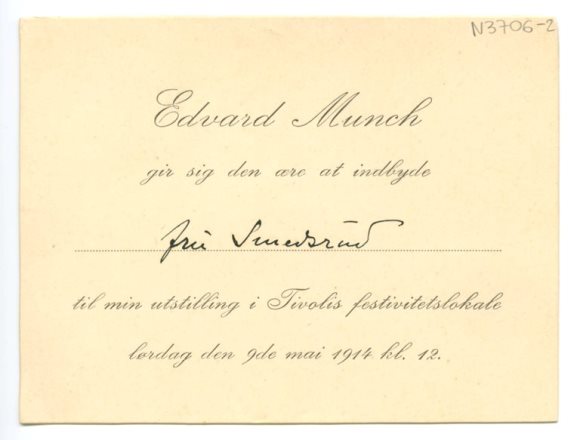 N3706-2
Edvard Munch
gir sig den ære at indbyde
fru Smedsrud
til min utstilling i Tivolis festivitetslokale
lørdag den 9de mai 1914 kl. 12.